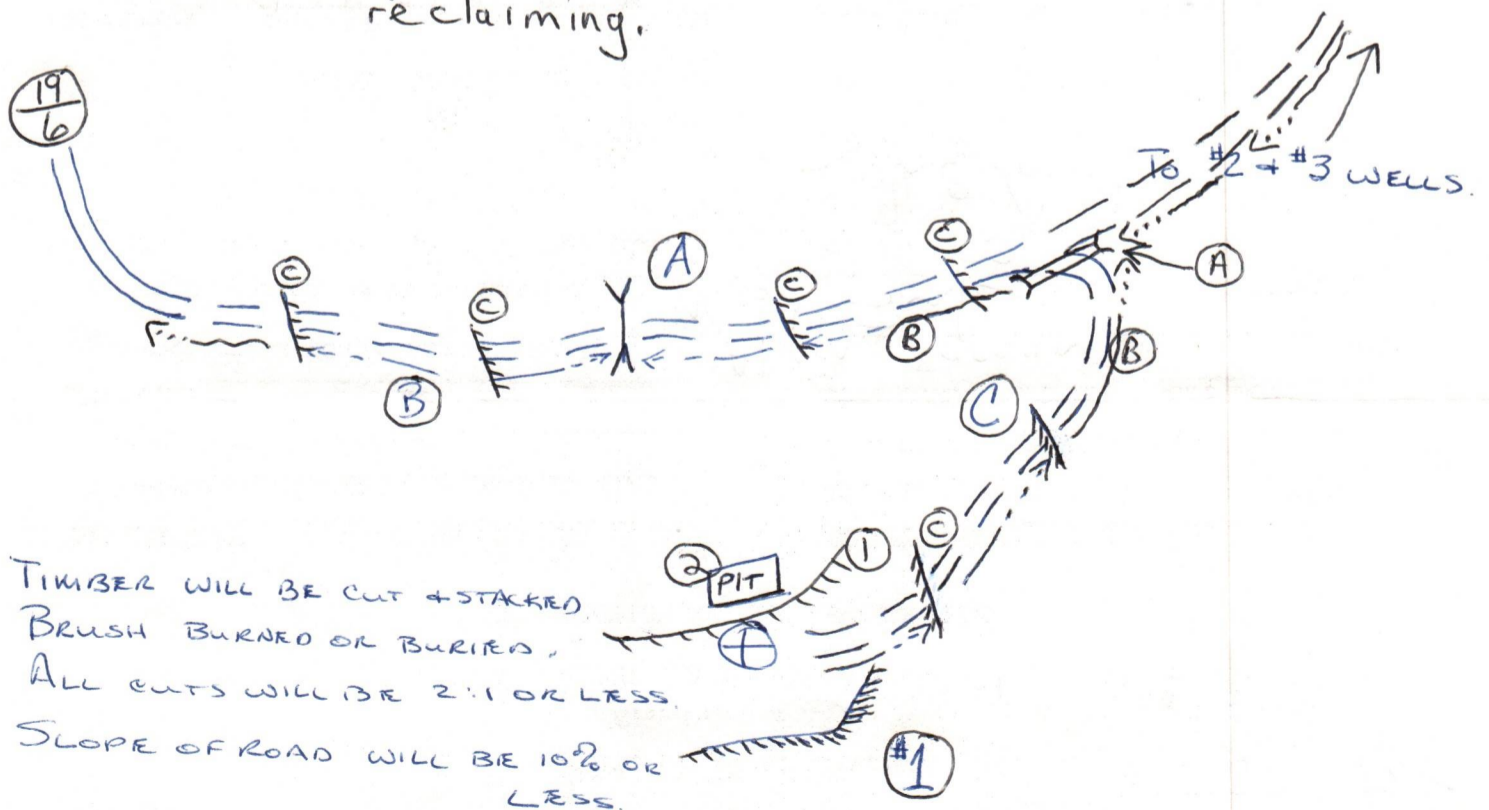 reclaiming.
19
6
To #2 + #3 WELLS.
C
A
C
C
C
A
B
B
B
C
C
2
PIT
1
TIMBER WILL BE CUT + STACKED
BRUSH BURNED OR BURIED.
ALL CUTS WILL BE 2:1 OR LESS.
SLOPE OF ROAD WILL BE 10% OR
LESS.
#1